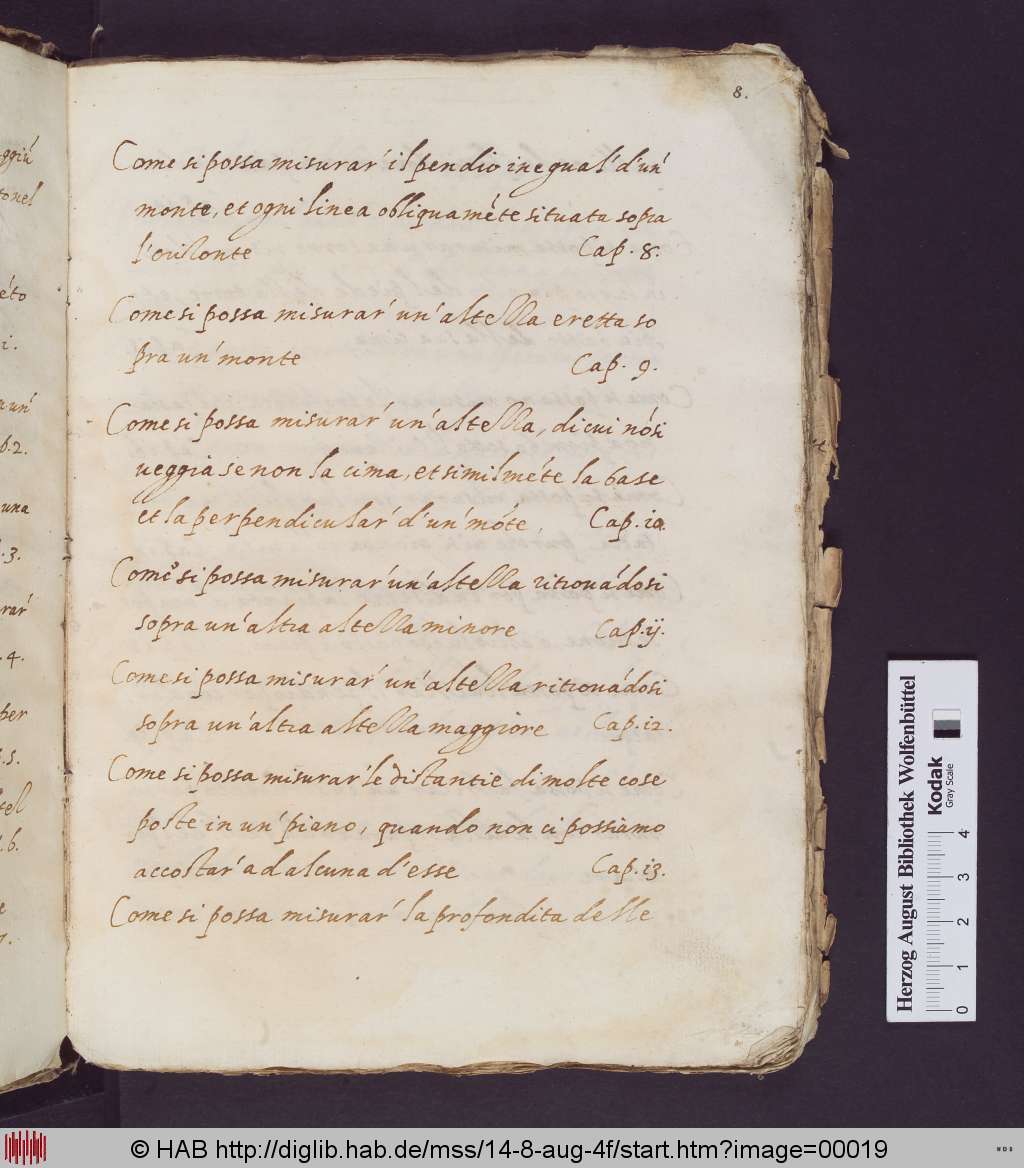 8.
Come si possa misurar' il pendio inegual' d'un'
monte, et ogni linea obliquaméte situata sopra
l'orizonte Cap. 8.
Come si possa misurar' un'altezza eretta so
pra un'monte Cap. 9.
Come si possa misurar' un'altezza, di cui nó si
veggia se non la cima, et similméte la base
et la perpendicular' d'un'móte. Cap. 10.
Come si possa misurar' un'altezza ritrouádosi
sopra un'altra altezza minore Cap. ij.
Come si possa misurar' un'altezza ritrouádosi
sopra un'altra altezza maggiore Cap. 12.
Come si possa misurar' le distantie di molte cose
poste in un' piano, quando non ci possiamo
accostar' ad alcuna d'esse Cap. 13.
Come si possa misurar' la profondita delle
ggiú
éto
i.
un'
b.2.
una
.3.
rar'
.4.
per
.5.
tel
.6.
e
7.
Herzog August Bibliothek Wolfenbüttel
Kodak
Gray Scale
0 1 2 3 4
© HAB http://diglib.hab.de/mss/14-8-aug-4f/start.htm?image=00019